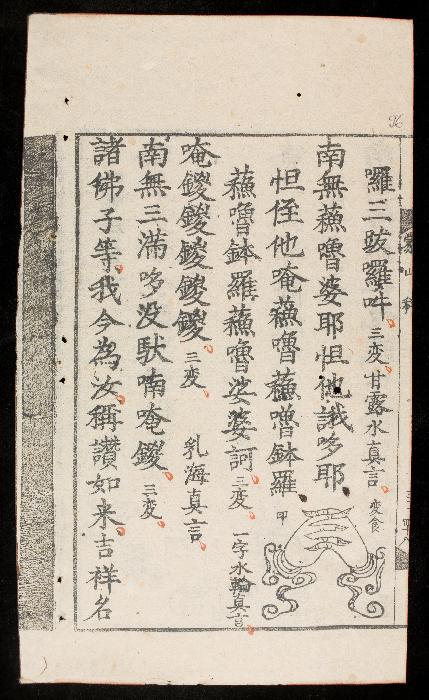 囉三跋囉吽三変甘露水真言変食
南無蘓嚕婆耶怛他誐哆耶
怛侄他唵蘓嚕蘓嚕鉢羅甲
蘓嚕鉢羅蘓嚕娑婆訶三変一字水輪真言
唵鑁鑁鑁鑁鑁三変乳海真言
南無三滿哆没馱喃唵鑁三変
諸佛子等我今為汝稱讃如来吉祥名
蒙山科
96